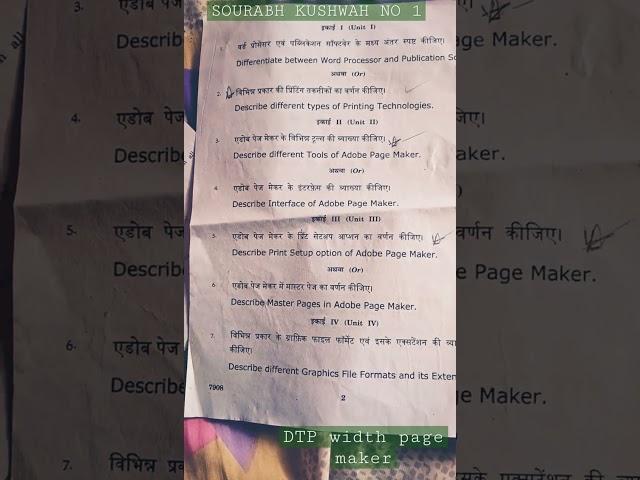 SOURABH KUSHWAH NO 1
इकाई I (Unit I)
वर्ड प्रोसेसर एवं पब्लिकेशन सॉफ्टवेर के मध्य अंतर स्पष्ट कीजिए।
Differentiate between Word Processor and Publication
अथवा (Or)
2. विभिन्न प्रकार की प्रिंटिंग तकनीकों का वर्णन कीजिए।
Describe different types of Printing Technologies.
इकाई II (Unit II)
3. एडोब पेज मेकर के विभिन्न टूल्स की व्याख्या कीजिए।
Describe different Tools of Adobe Page Maker.
अथवा (Or)
4. एडोब पेज मेकर के इंटरफ़ेस की व्याख्या कीजिए।
Describe Interface of Adobe Page Maker.
इकाई III (Unit III)
5. एडोब पेज मेकर के प्रिंट सेटअप आप्शन का वर्णन कीजिए।
Describe Print Setup option of Adobe Page Maker.
अथवा (Or)
6. एडोब पेज मेकर में मास्टर पेज का वर्णन कीजिए।
Describe Master Pages in Adobe Page Maker.
इकाई IV (Unit IV)
7. विभिन्न प्रकार के ग्राफ़िक फाइल फॉर्मेट एवं इसके एक्सटेंशन की
कीजिए।
Describe different Graphics File Formats and its
7908
2
DTP width page
maker